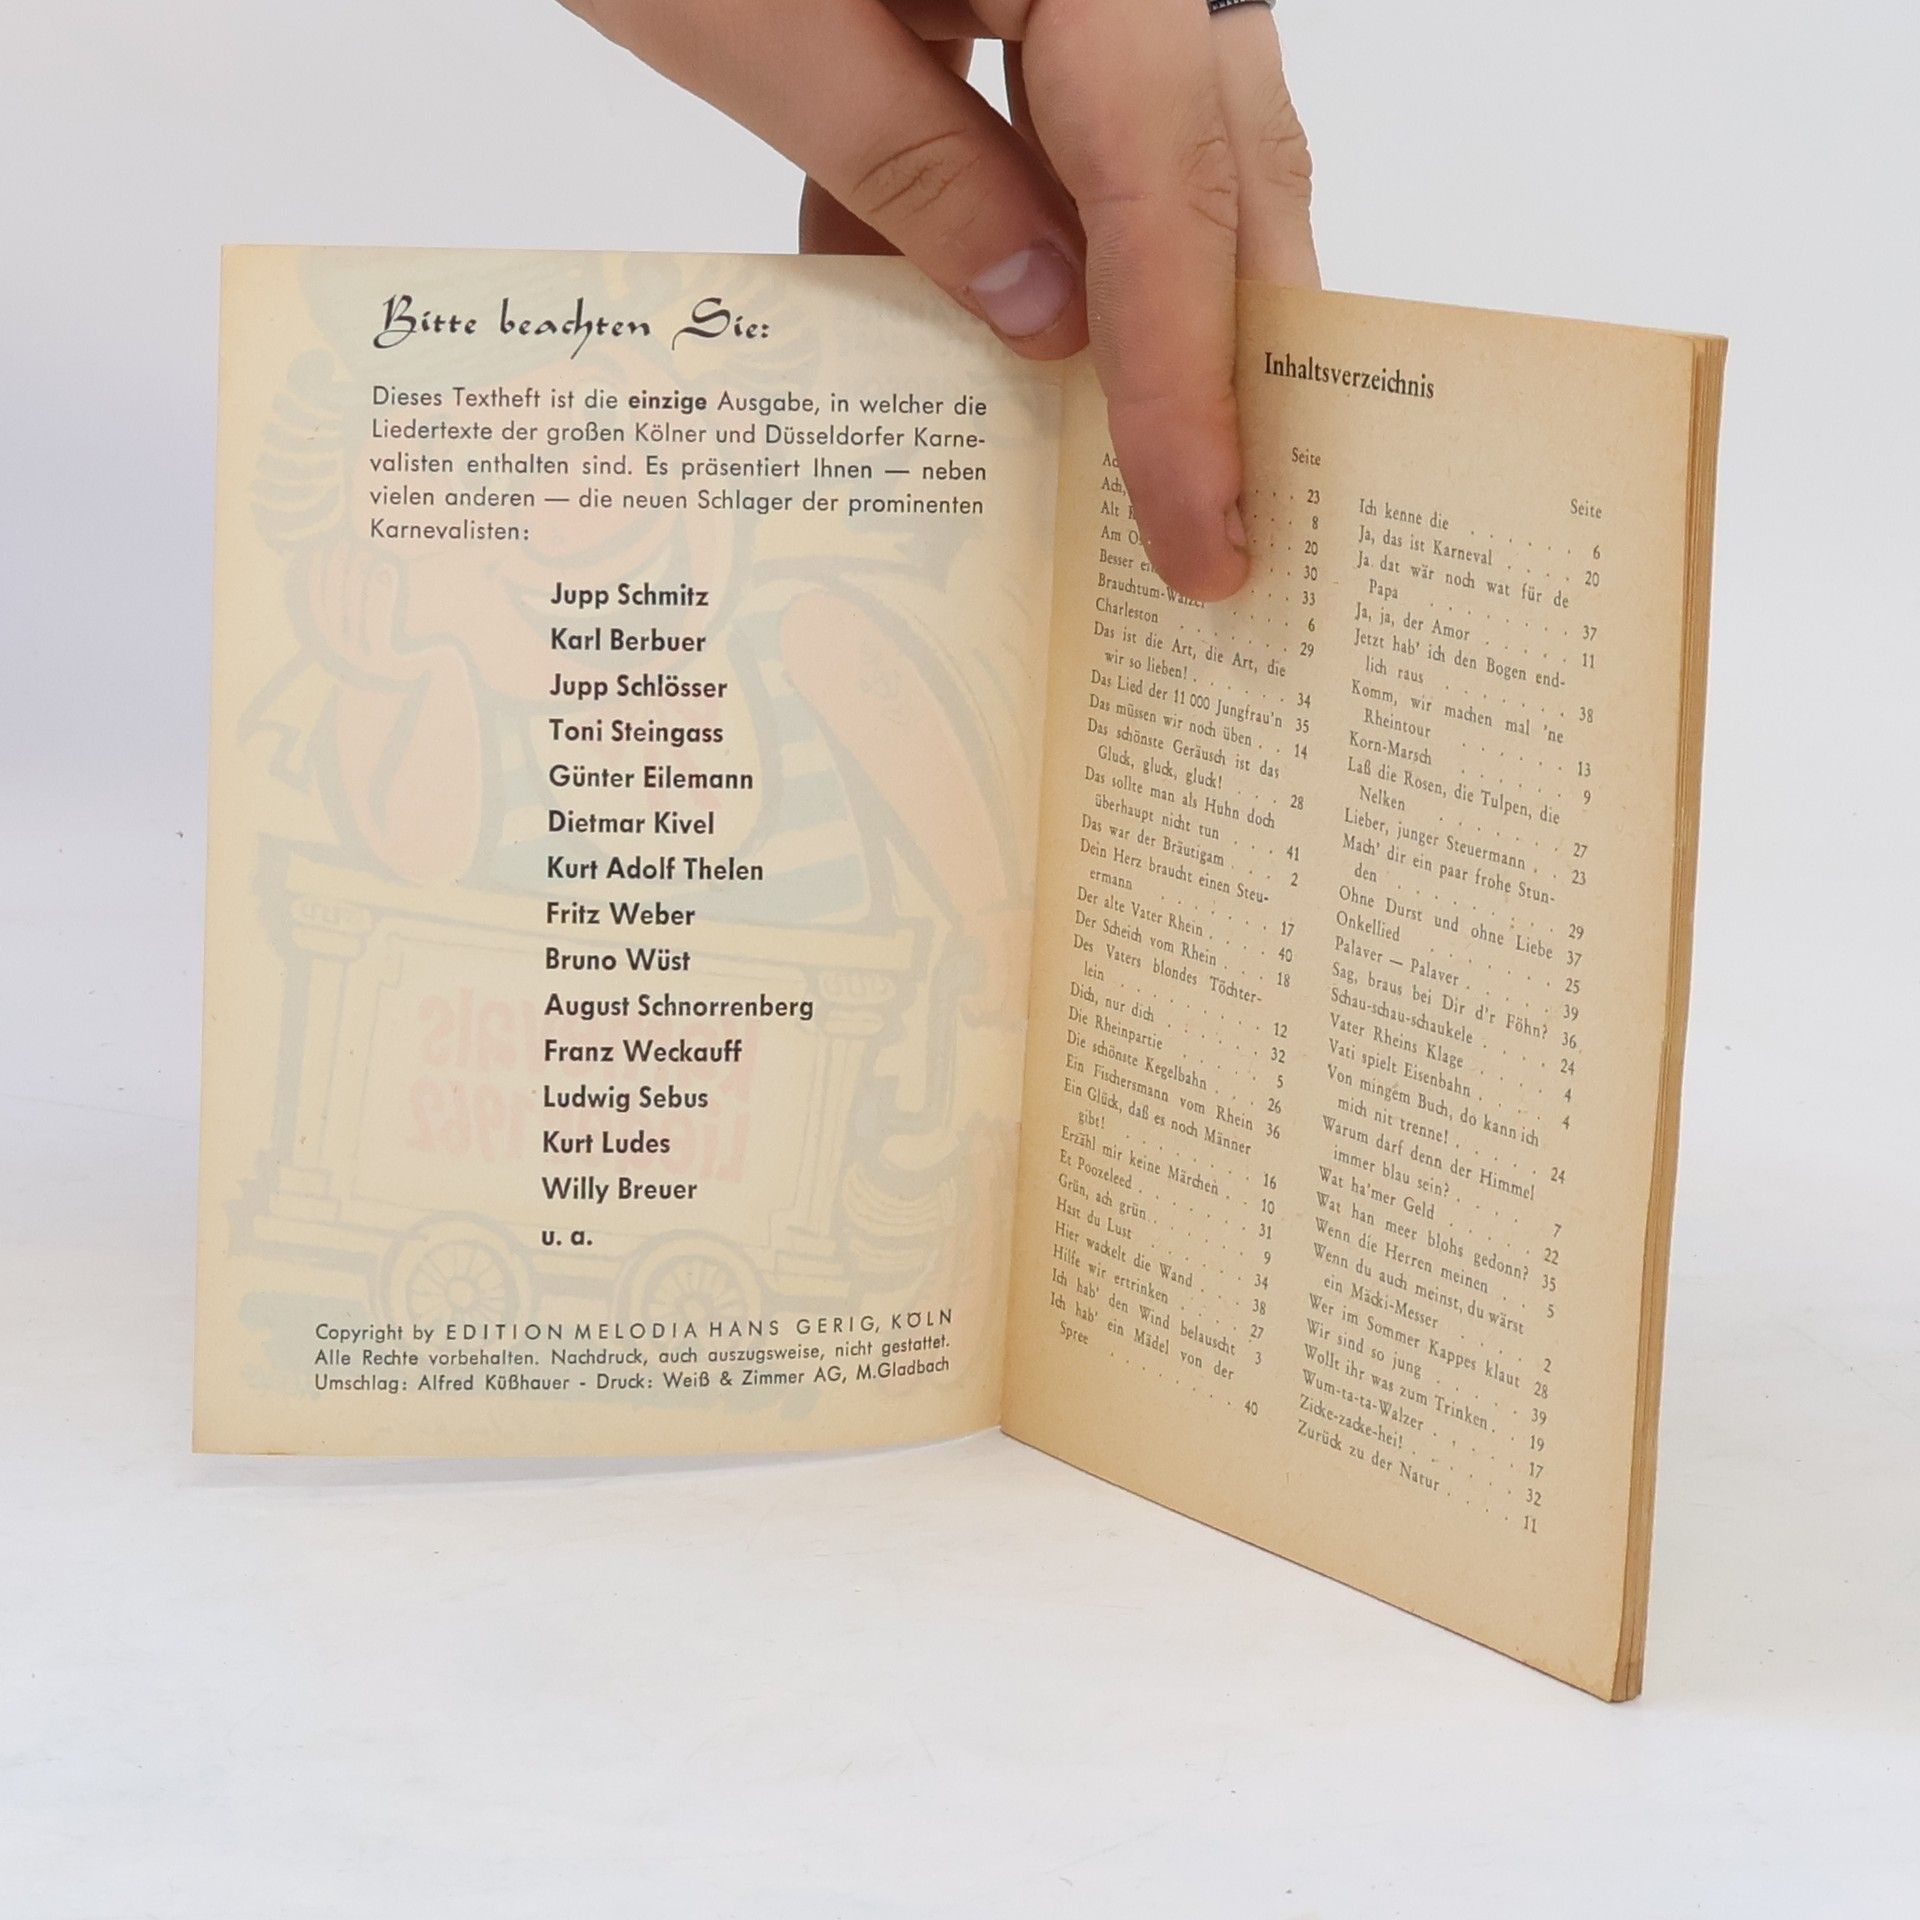 Bitte beachten Sie:
Dieses Textheft ist die einzige Ausgabe, in welcher die
Liedertexte der großen Kölner und Düsseldorfer Karne-
valisten enthalten sind. Es präsentiert Ihnen — neben
vielen anderen — die neuen Schlager der prominenten
Karnevalisten:
Jupp Schmitz
Karl Berbuer
Jupp Schlösser
Toni Steingass
Günter Eilemann
Dietmar Kivel
Kurt Adolf Thelen
Fritz Weber
Bruno Wüst
August Schnorrenberg
Franz Weckauff
Ludwig Sebus
Kurt Ludes
Willy Breuer
u. a.
Copyright by EDITION MELODIA HANS GERIG, KÖLN
Alle Rechte vorbehalten. Nachdruck, auch auszugsweise, nicht gestattet.
Umschlag: Alfred Küßhauer - Druck: Weiß & Zimmer AG, M.Gladbach
Inhaltsverzeichnis
Seite
23
Ach, 8
Alt 20
Am 30
Besser 33
Brauchtum-Walzer . . . 6
Charleston . . . . . . 29
Das ist die Art, die Art, die
wir so lieben! . . . . . 34
Das Lied der 11 000 Jungfrau'n 35
Das müssen wir noch üben . . 14
Das schönste Geräusch ist das
Gluck, gluck, gluck! . . . 28
Das sollte man als Huhn doch
überhaupt nicht tun . . . 41
Das war der Bräutigam . . . 2
Dein Herz braucht einen Steu-
ermann . . . . . . . 17
Der alte Vater Rhein . . . . 40
Der Scheich vom Rhein . . . 18
Des Vaters blondes Töchter-
lein . . . . . . . . 12
Dich, nur dich . . . . . . 32
Die Rheinpartie . . . . . 5
Die schönste Kegelbahn . . . 26
Ein Fischersmann vom Rhein 36
Ein Glück, daß es noch Männer
gibt! . . . . . . . . 16
Erzähl mir keine Märchen . . 10
Et Poozeleed . . . . . . 31
Grün, ach grün . . . . . . 9
Hast du Lust . . . . . . 34
Hier wackelt die Wand . . . 38
Hilfe wir ertrinken . . . . 27
Ich hab' den Wind belauscht 3
Ich hab' ein Mädel von der
Spree . . . . . . . . 40
Seite
Ich kenne die . . . . . . 6
Ja, das ist Karneval . . . . 20
Ja. dat wär noch wat für de
Papa . . . . . . . . 37
Ja, ja, der Amor . . . . . 11
Jetzt hab' ich den Bogen end-
lich raus . . . . . . . 38
Komm, wir machen mal 'ne
Rheintour . . . . . . 13
Korn-Marsch . . . . . . 9
Laß die Rosen, die Tulpen, die
Nelken . . . . . . . 27
Lieber, junger Steuermann . . 23
Mach' dir ein paar frohe Stun-
den . . . . . . . . 29
Ohne Durst und ohne Liebe 37
Onkellied . . . . . . . 25
Palaver — Palaver . . . . . 39
Sag, braus bei Dir d'r Föhn? 36
Schau-schau-schaukele . . . . 24
Vater Rheins Klage . . . . 4
Vati spielt Eisenbahn . . . . 4
Von mingem Buch, do kann ich
mich nit trenne! . . . . . 24
Warum darf denn der Himmel
immer blau sein? . . . . 7
Wat ha'mer Geld . . . . . 22
Wat han meer blohs gedonn? 35
Wenn die Herren meinen . . 5
Wenn du auch meinst, du wärst
ein Mäcki-Messer . . . . 2
Wer im Sommer Kappes klaut 28
Wir sind so jung . . . . . 39
Wollt ihr was zum Trinken . . 19
Wum-ta-ta-Walzer . . . . . 17
Zicke-zacke-hei! . . . . . 32
Zurück zu der Natur . . . . 11